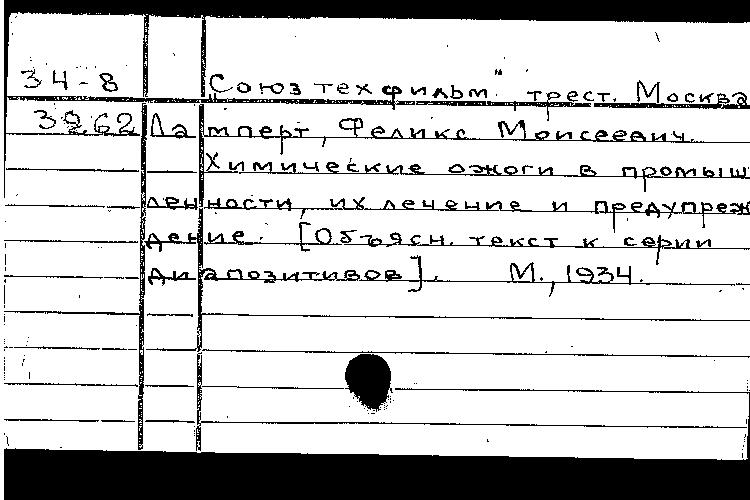 34-8 „Союзтехфильм", трест. Москва
39262 Ламперт, Феликс Моисеевич.
Химические ожоги в промыш
ленности, их лечение и предупреж
дение. [Объясн. текст к серии
диапозитивов]. М., 1934.